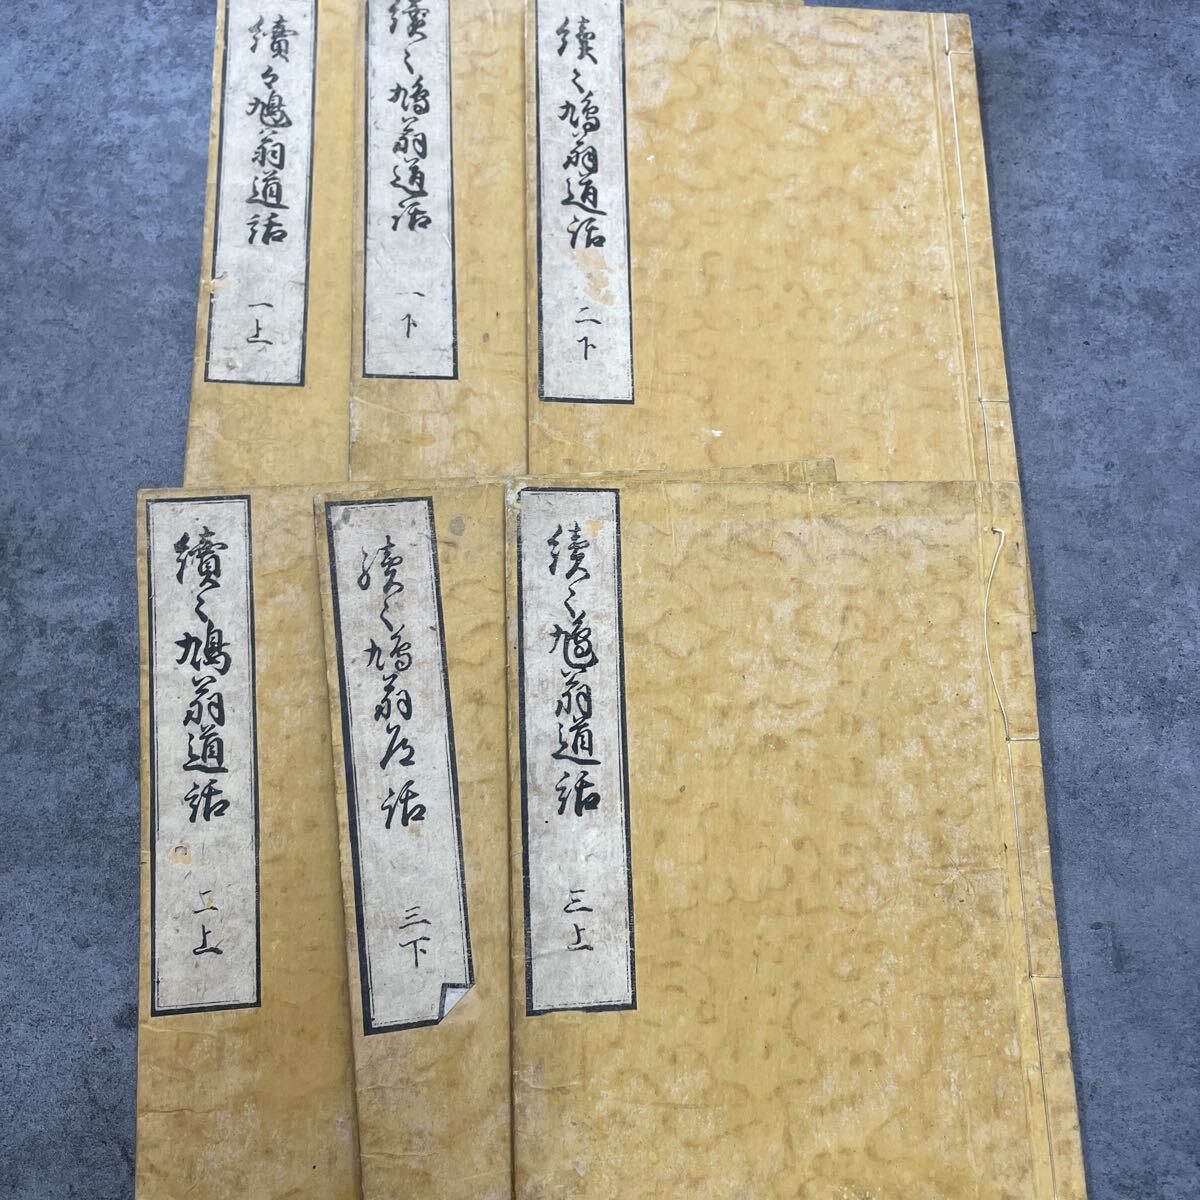 續々鳩翁道話 一上
續々鳩翁道話 一下
續々鳩翁道話 二下
續々鳩翁道話 二上
續々鳩翁道話 三下
續々鳩翁道話 三上